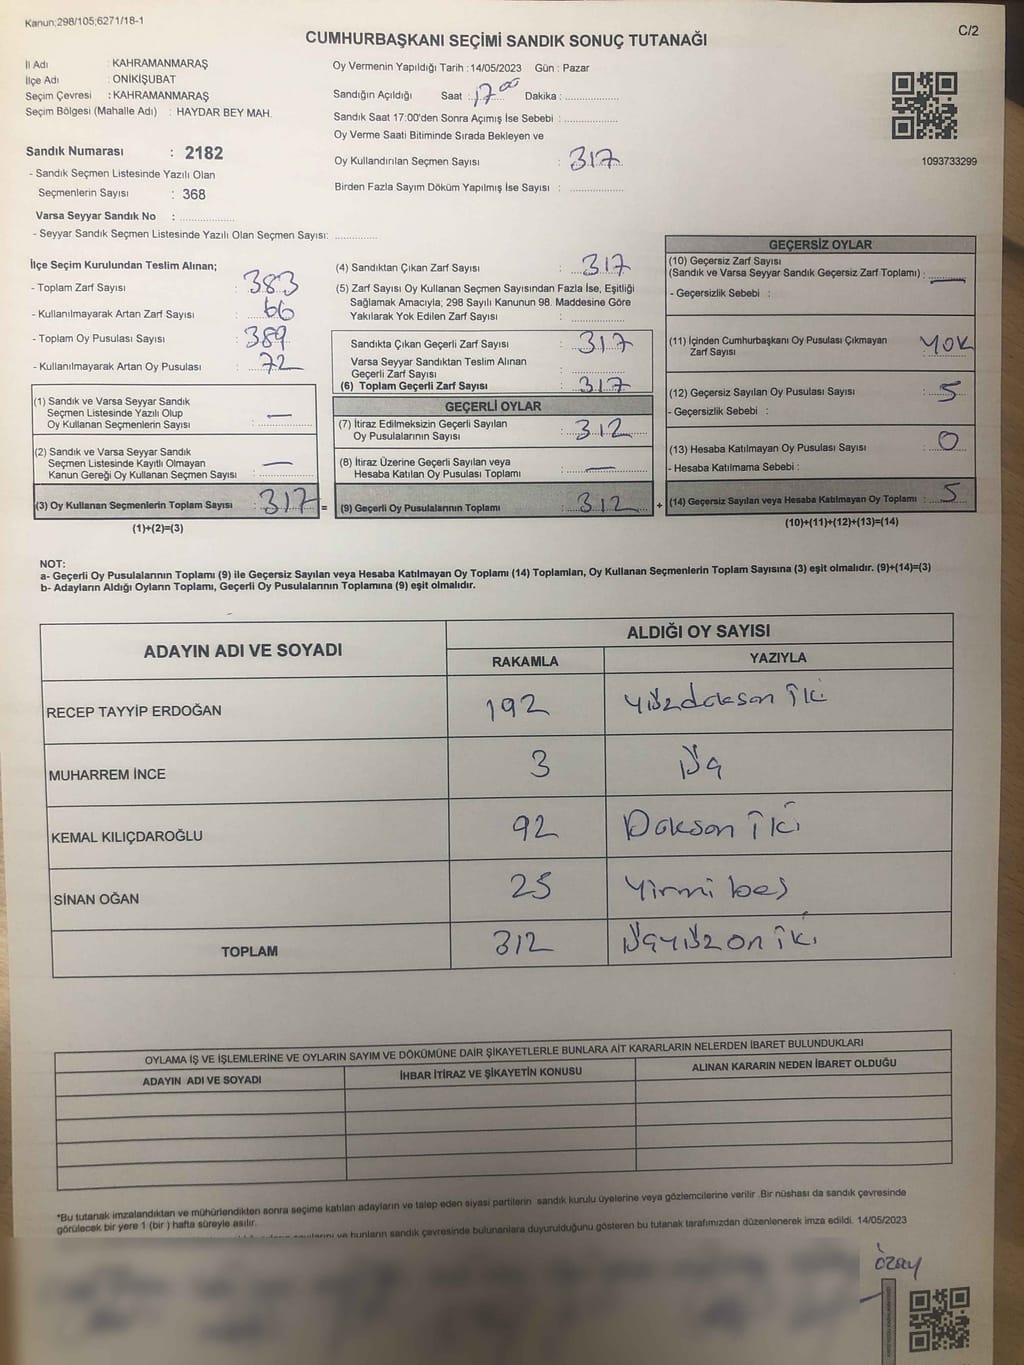 Kanun;298/105;6271/18-1
C/2
CUMHURBAŞKANI SEÇİMİ SANDIK SONUÇ TUTANAĞI
İl Adı : KAHRAMANMARAŞ
İlçe Adı : ONİKİŞUBAT
Seçim Çevresi : KAHRAMANMARAŞ
Seçim Bölgesi (Mahalle Adı) : HAYDAR BEY MAH.
Sandık Numarası : 2182
- Sandık Seçmen Listesinde Yazılı Olan
Seçmenlerin Sayısı : 368
Varsa Seyyar Sandık No : ....................
- Seyyar Sandık Seçmen Listesinde Yazılı Olan Seçmen Sayısı: ...............
Oy Vermenin Yapıldığı Tarih : 14/05/2023 Gün : Pazar
Sandığın Açıldığı Saat : 17 00 Dakika : ....................
Sandık Saat 17:00'den Sonra Açımış İse Sebebi : ....................
Oy Verme Saati Bitiminde Sırada Bekleyen ve
Oy Kullandırılan Seçmen Sayısı : 317
Birden Fazla Sayım Döküm Yapılmış İse Sayısı : ....................
1093733299
İlçe Seçim Kurulundan Teslim Alınan;
- Toplam Zarf Sayısı : 383
- Kullanılmayarak Artan Zarf Sayısı : 66
- Toplam Oy Pusulası Sayısı : 389
- Kullanılmayarak Artan Oy Pusulası : 72
(1) Sandık ve Varsa Seyyar Sandık
Seçmen Listesinde Yazılı Olup
Oy Kullanan Seçmenlerin Sayısı : —
(2) Sandık ve Varsa Seyyar Sandık
Seçmen Listesinde Kayıtlı Olmayan
Kanun Gereği Oy Kullanan Seçmen Sayısı : —
(3) Oy Kullanan Seçmenlerin Toplam Sayısı : 317 =
(1)+(2)=(3)
(4) Sandıktan Çıkan Zarf Sayısı : 317
(5) Zarf Sayısı Oy Kullanan Seçmen Sayısından Fazla İse, Eşitliği
Sağlamak Amacıyla; 298 Sayılı Kanunun 98. Maddesine Göre
Yakılarak Yok Edilen Zarf Sayısı : ....................
Sandıkta Çıkan Geçerli Zarf Sayısı : 317
Varsa Seyyar Sandıktan Teslim Alınan
Geçerli Zarf Sayısı : ....................
(6) Toplam Geçerli Zarf Sayısı : 317
GEÇERLİ OYLAR
(7) İtiraz Edilmeksizin Geçerli Sayılan
Oy Pusulalarının Sayısı : 312
(8) İtiraz Üzerine Geçerli Sayılan veya
Hesaba Katılan Oy Pusulası Toplamı : —
(9) Geçerli Oy Pusulalarının Toplamı : 312 +
GEÇERSİZ OYLAR
(10) Geçersiz Zarf Sayısı
(Sandık ve Varsa Seyyar Sandık Geçersiz Zarf Toplamı) : —
- Geçersizlik Sebebi :
(11) İçinden Cumhurbaşkanı Oy Pusulası Çıkmayan
Zarf Sayısı : YOK
(12) Geçersiz Sayılan Oy Pusulası Sayısı : 5
- Geçersizlik Sebebi :
(13) Hesaba Katılmayan Oy Pusulası Sayısı : 0
- Hesaba Katılmama Sebebi :
(14) Geçersiz Sayılan veya Hesaba Katılmayan Oy Toplamı : 5
(10)+(11)+(12)+(13)=(14)
NOT:
a- Geçerli Oy Pusulalarının Toplamı (9) ile Geçersiz Sayılan veya Hesaba Katılmayan Oy Toplamı (14) Toplamları, Oy Kullanan Seçmenlerin Toplam Sayısına (3) eşit olmalıdır. (9)+(14)=(3)
b- Adayların Aldığı Oyların Toplamı, Geçerli Oy Pusulalarının Toplamına (9) eşit olmalıdır.
ADAYIN ADI VE SOYADI
ALDIĞI OY SAYISI
RAKAMLA YAZIYLA
RECEP TAYYİP ERDOĞAN 192 Yüzdoksan iki
MUHARREM İNCE 3 Üç
KEMAL KILIÇDAROĞLU 92 Doksan iki
SİNAN OĞAN 25 Yirmi beş
TOPLAM 312 Üçyüz on iki
OYLAMA İŞ VE İŞLEMLERİNE VE OYLARIN SAYIM VE DÖKÜMÜNE DAİR ŞİKAYETLERLE BUNLARA AİT KARARLARIN NELERDEN İBARET BULUNDUKLARI
ADAYIN ADI VE SOYADI İHBAR İTİRAZ VE ŞİKAYETİN KONUSU ALINAN KARARIN NEDEN İBARET OLDUĞU
*Bu tutanak imzalandıktan ve mühürlendikten sonra seçime katılan adayların ve talep eden siyasi partilerin sandık kurulu üyelerine veya gözlemcilerine verilir .Bir nüshası da sandık çevresinde
görülecek bir yere 1 (bir ) hafta süreyle asılır.
ve bunların sandık çevresinde bulunanlara duyurulduğunu gösteren bu tutanak tarafımızdan düzenlenerek imza edildi. 14/05/2023
özay